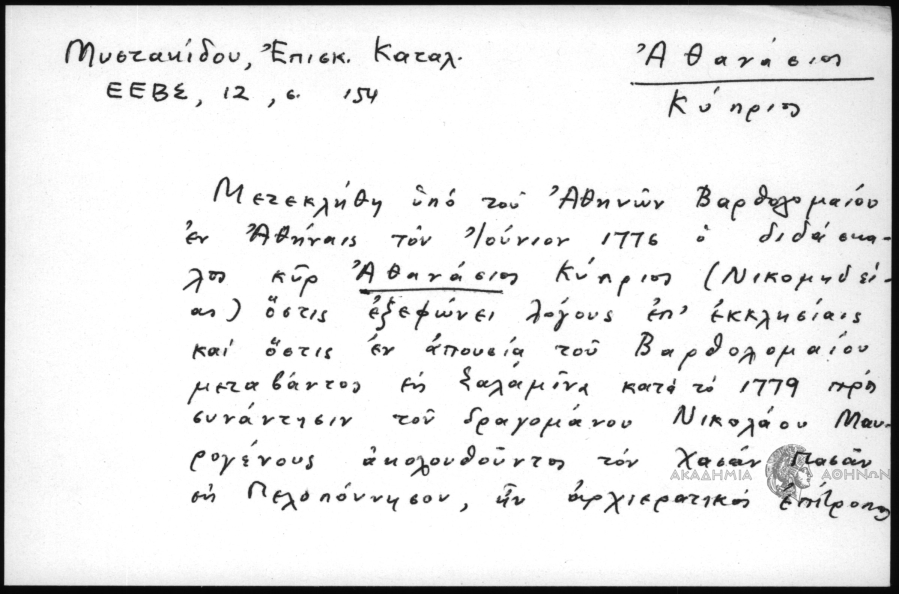 Μυστακίδου, Ἐπισκ. Καταλ.
ΕΕΒΣ, 12, σ. 154
Ἀθανάσιος
Κύπριος
Μετεκλήθη ὑπό τοῦ Ἀθηνῶν Βαρθολομαίου
ἐν Ἀθήναις τόν Ἰούνιον 1776 ὁ διδάσκα-
λος κῦρ Ἀθανάσιος Κύπριος (Νικομηδεί-
ας) ὅστις ἐξεφώνει λόγους ἐπ' ἐκκλησίαις
καί ὅστις ἐν ἀπουσίᾳ τοῦ Βαρθολομαίου
μεταβάντος εἰς Σαλαμῖνα κατά τό 1779 πρός
συνάντησιν τοῦ δραγομάνου Νικολάου Μαυ-
ρογένους ἀκολουθοῦντος τόν Χασάν Πασᾶν
εἰς Πελοπόννησον, ἦν ἀρχιερατικός ἐπίτροπος
ΑΚΑΔΗΜΙΑ ΑΘΗΝΩΝ